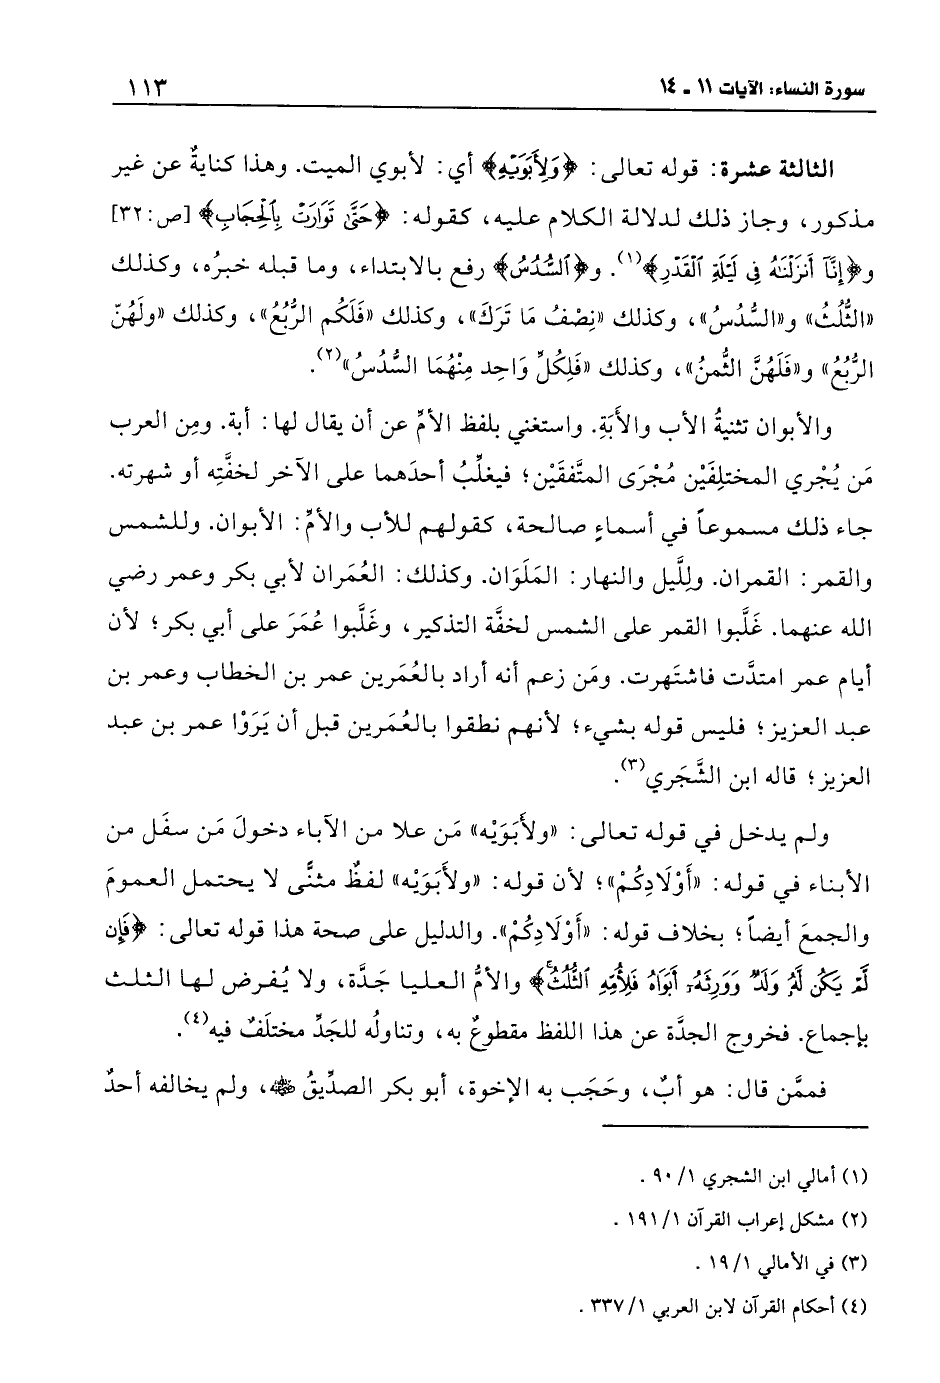 سورة النساء: الآيات ١١ - ١٤
١١٣
الثالثة عشرة: قوله تعالى: ﴿وَلِأَبَوَيْهِ﴾ أي: لأبوي الميت. وهذا كنايةٌ عن غير
مذكور، وجاز ذلك لدلالة الكلام عليه، كقوله: ﴿حَتَّىٰ تَوَارَتْ بِٱلْحِجَابِ﴾ [ص:٣٢]
و﴿إِنَّآ أَنزَلْنَٰهُ فِى لَيْلَةِ ٱلْقَدْرِ﴾(١). و﴿ٱلسُّدُسُ﴾ رفع بالابتداء، وما قبله خبرُه، وكذلك
«الثُّلُثُ» و«السُّدُسُ»، وكذلك «نِصْفُ مَا تَرَكَ»، وكذلك «فَلَكُم الرُّبُعُ»، وكذلك «ولَهُنّ
الرُّبُعُ» و«فَلَهُنَّ الثُّمنُ»، وكذلك «فَلِكلِّ وَاحِد مِنْهُمَا السُّدُسُ»(٢).
والأبوان تثنيةُ الأب والأَبَةِ. واستغني بلفظ الأمِّ عن أن يقال لها: أبة. ومِن العرب
مَن يُجْري المختلِفَيْن مُجْرَى المتَّفقَيْن؛ فيغلِّبُ أحدَهما على الآخر لخفَّتِه أو شهرته.
جاء ذلك مسموعاً في أسماءٍ صالحة، كقولهم للأب والأمِّ: الأبوان. وللشمس
والقمر: القمران. ولِلَّيل والنهار: المَلَوَان. وكذلك: العُمَران لأبي بكر وعمر رضي
الله عنهما. غَلَّبوا القمر على الشمس لخفَّة التذكير، وغَلَّبوا عُمَرَ على أبي بكر؛ لأن
أيام عمر امتدَّت فاشتَهرت. ومَن زعم أنه أراد بالعُمَرين عمر بن الخطاب وعمر بن
عبد العزيز؛ فليس قوله بشيء؛ لأنهم نطقوا بالعُمَرين قبل أن يَرَوْا عمر بن عبد
العزيز؛ قاله ابن الشَّجَري(٣).
ولم يدخل في قوله تعالى: «ولأَبَوَيْه» مَن علا من الآباء دخولَ مَن سفَل من
الأبناء في قوله: «أَوْلَادِكُمْ»؛ لأن قوله: «ولأَبَوَيْه» لفظٌ مثنًّى لا يحتمل العمومَ
والجمعَ أيضاً؛ بخلاف قوله: «أَوْلَادِكُمْ». والدليل على صحة هذا قوله تعالى: ﴿فَإِن
لَّمْ يَكُن لَّهُۥ وَلَدٌ وَوَرِثَهُۥٓ أَبَوَاهُ فَلِأُمِّهِ ٱلثُّلُثُ﴾ والأمُّ العليا جَدَّة، ولا يُفرض لها الثلث
بإجماع. فخروج الجدَّة عن هذا اللفظ مقطوعٌ به، وتناولُه للجَدِّ مختلَفٌ فيه(٤).
فممَّن قال: هو أبٌ، وحَجَب به الإخوة، أبو بكر الصدِّيقُ ﵁، ولم يخالفه أحدٌ
(١) أمالي ابن الشجري ٩٠/١ .
(٢) مشكل إعراب القرآن ١٩١/١ .
(٣) في الأمالي ١٩/١ .
(٤) أحكام القرآن لابن العربي ٣٣٧/١ .